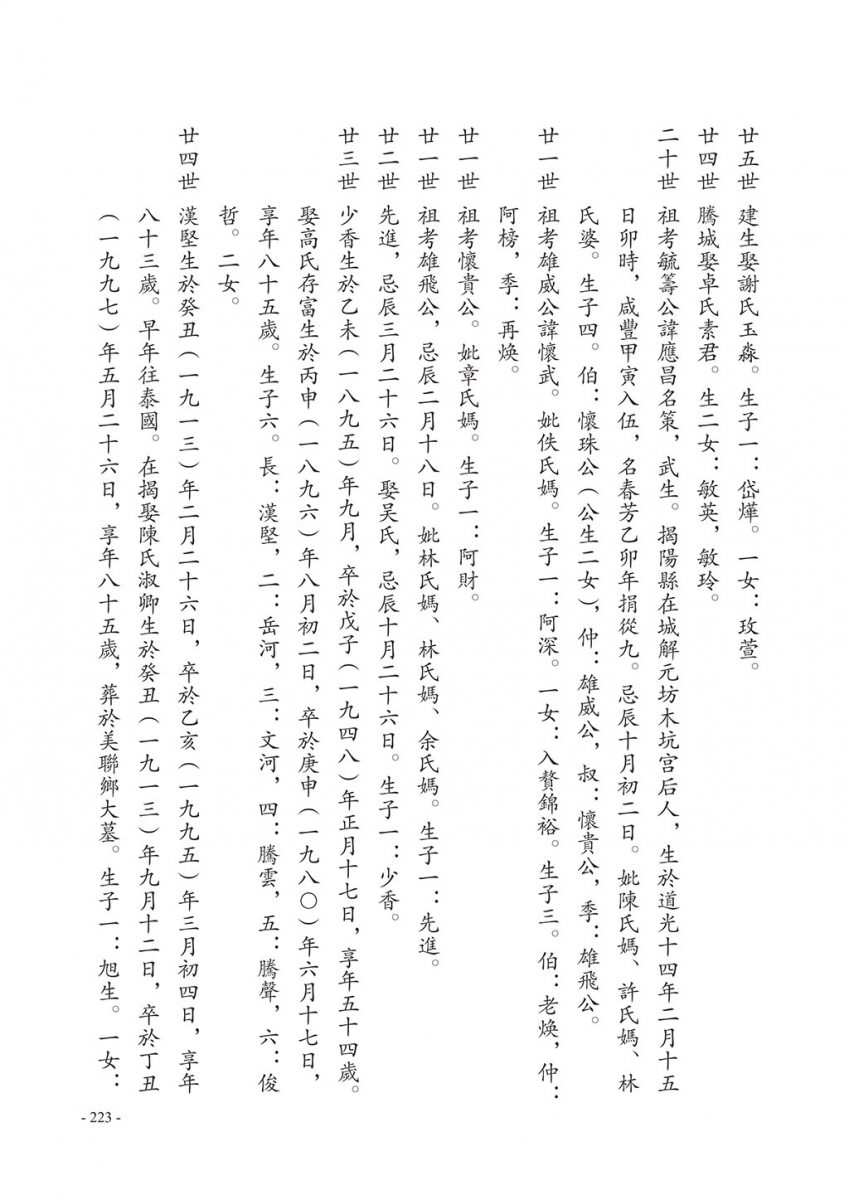 廿五世 建生娶謝氏玉淼。生子一：岱燁。一女：玫萱。
廿四世 騰城娶卓氏素君。生二女：敏英，敏玲。
二十世 祖考毓籌公諱應昌名策，武生。揭陽縣在城解元坊木坑宮后人，生於道光十四年二月十五
日卯時，咸豐甲寅入伍，名春芳乙卯年捐從九。忌辰十月初二日。妣陳氏媽、許氏媽、林
氏婆。生子四。伯：懷珠公（公生二女），仲：雄威公，叔：懷貴公，季：雄飛公。
廿一世 祖考雄威公諱懷武。妣佚氏媽。生子一：阿深。一女：入贅錦裕。生子三。伯：老煥，仲：
阿榜，季：再煥。
廿一世 祖考懷貴公。妣章氏媽。生子一：阿財。
廿一世 祖考雄飛公，忌辰二月十八日。妣林氏媽、林氏媽、余氏媽。生子一：先進。
廿二世 先進，忌辰三月二十六日。娶吴氏，忌辰十月二十六日。生子一：少香。
廿三世 少香生於乙未（一八九五）年九月，卒於戊子（一九四八）年正月十七日，享年五十四歲。
娶高氏存富生於丙申（一八九六）年八月初二日，卒於庚申（一九八〇）年六月十七日，
享年八十五歲。生子六。長：漢堅，二：岳河，三：文河，四：騰雲，五：騰聲，六：俊
哲。二女。
廿四世 漢堅生於癸丑（一九一三）年二月二十六日，卒於乙亥（一九九五）年三月初四日，享年
八十三歲。早年往泰國。在揭娶陳氏淑卿生於癸丑（一九一三）年九月十二日，卒於丁丑
（一九九七）年五月二十六日，享年八十五歲，葬於美聯鄉大墓。生子一：旭生。一女：
- 223 -